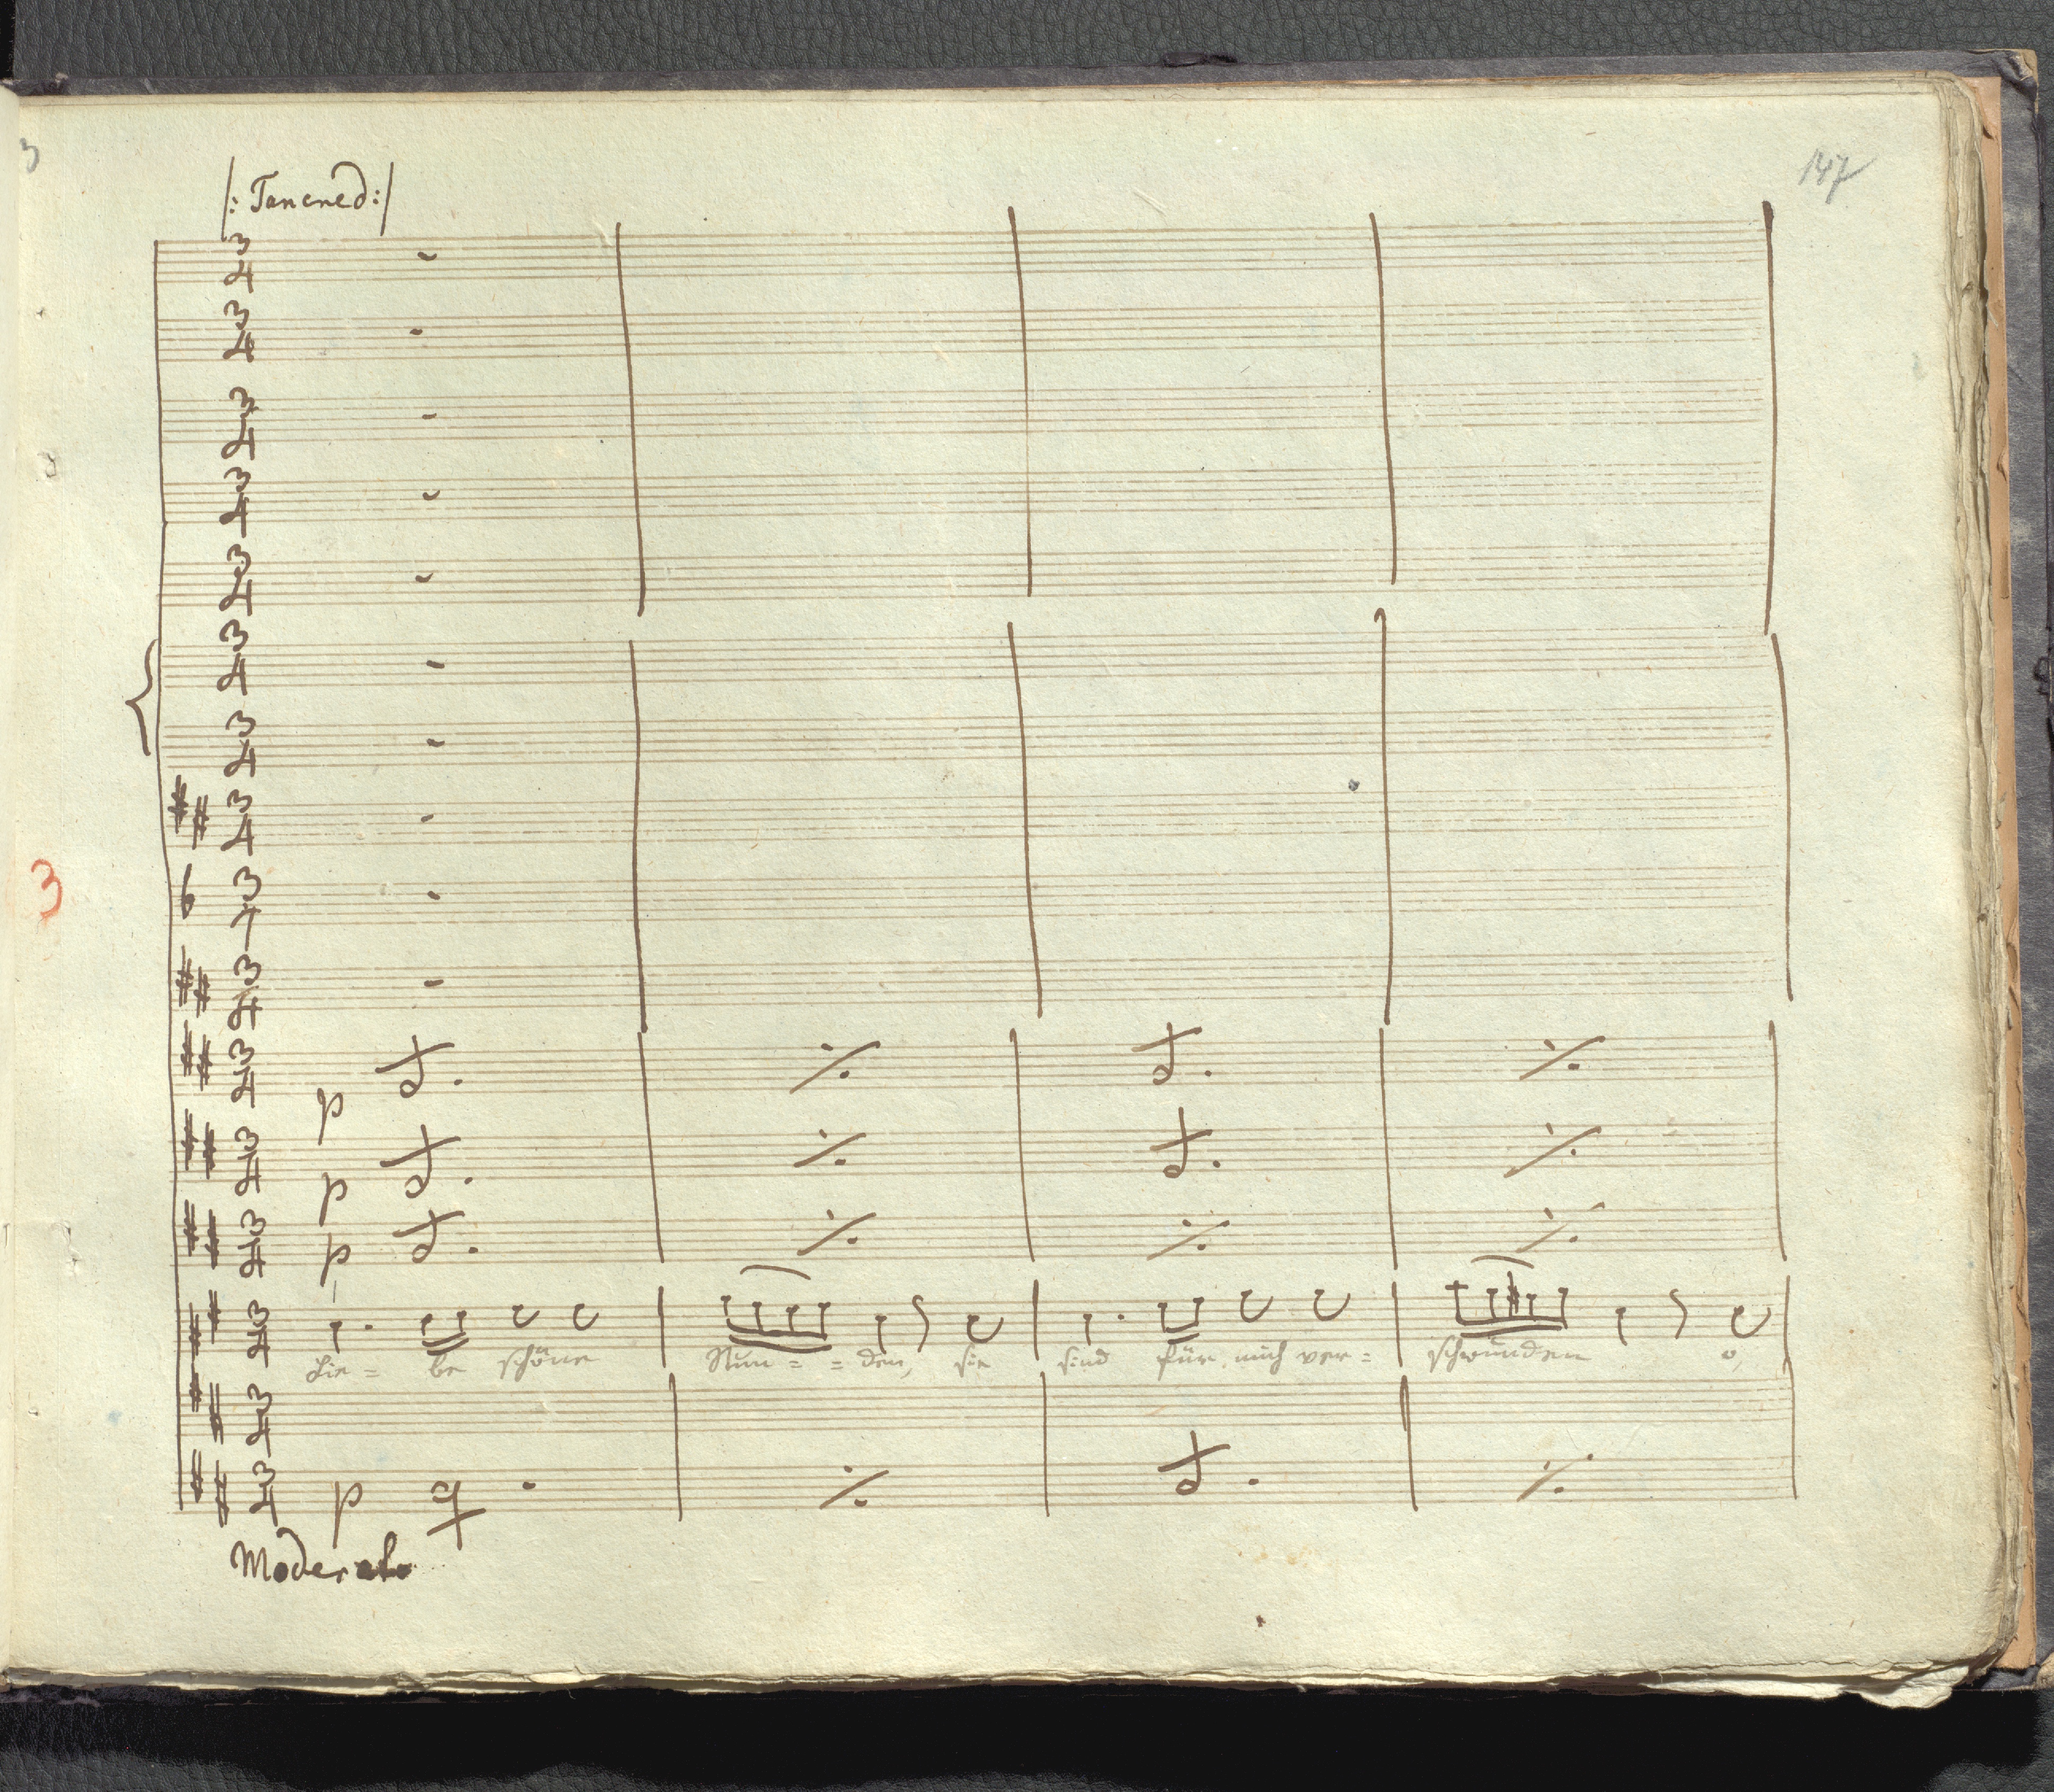 3
147
|: Tancred :|
3
p
p
p
Lie = be schöne Stun = = den, sie sind für mich ver = schwunden o,
p
Moderato